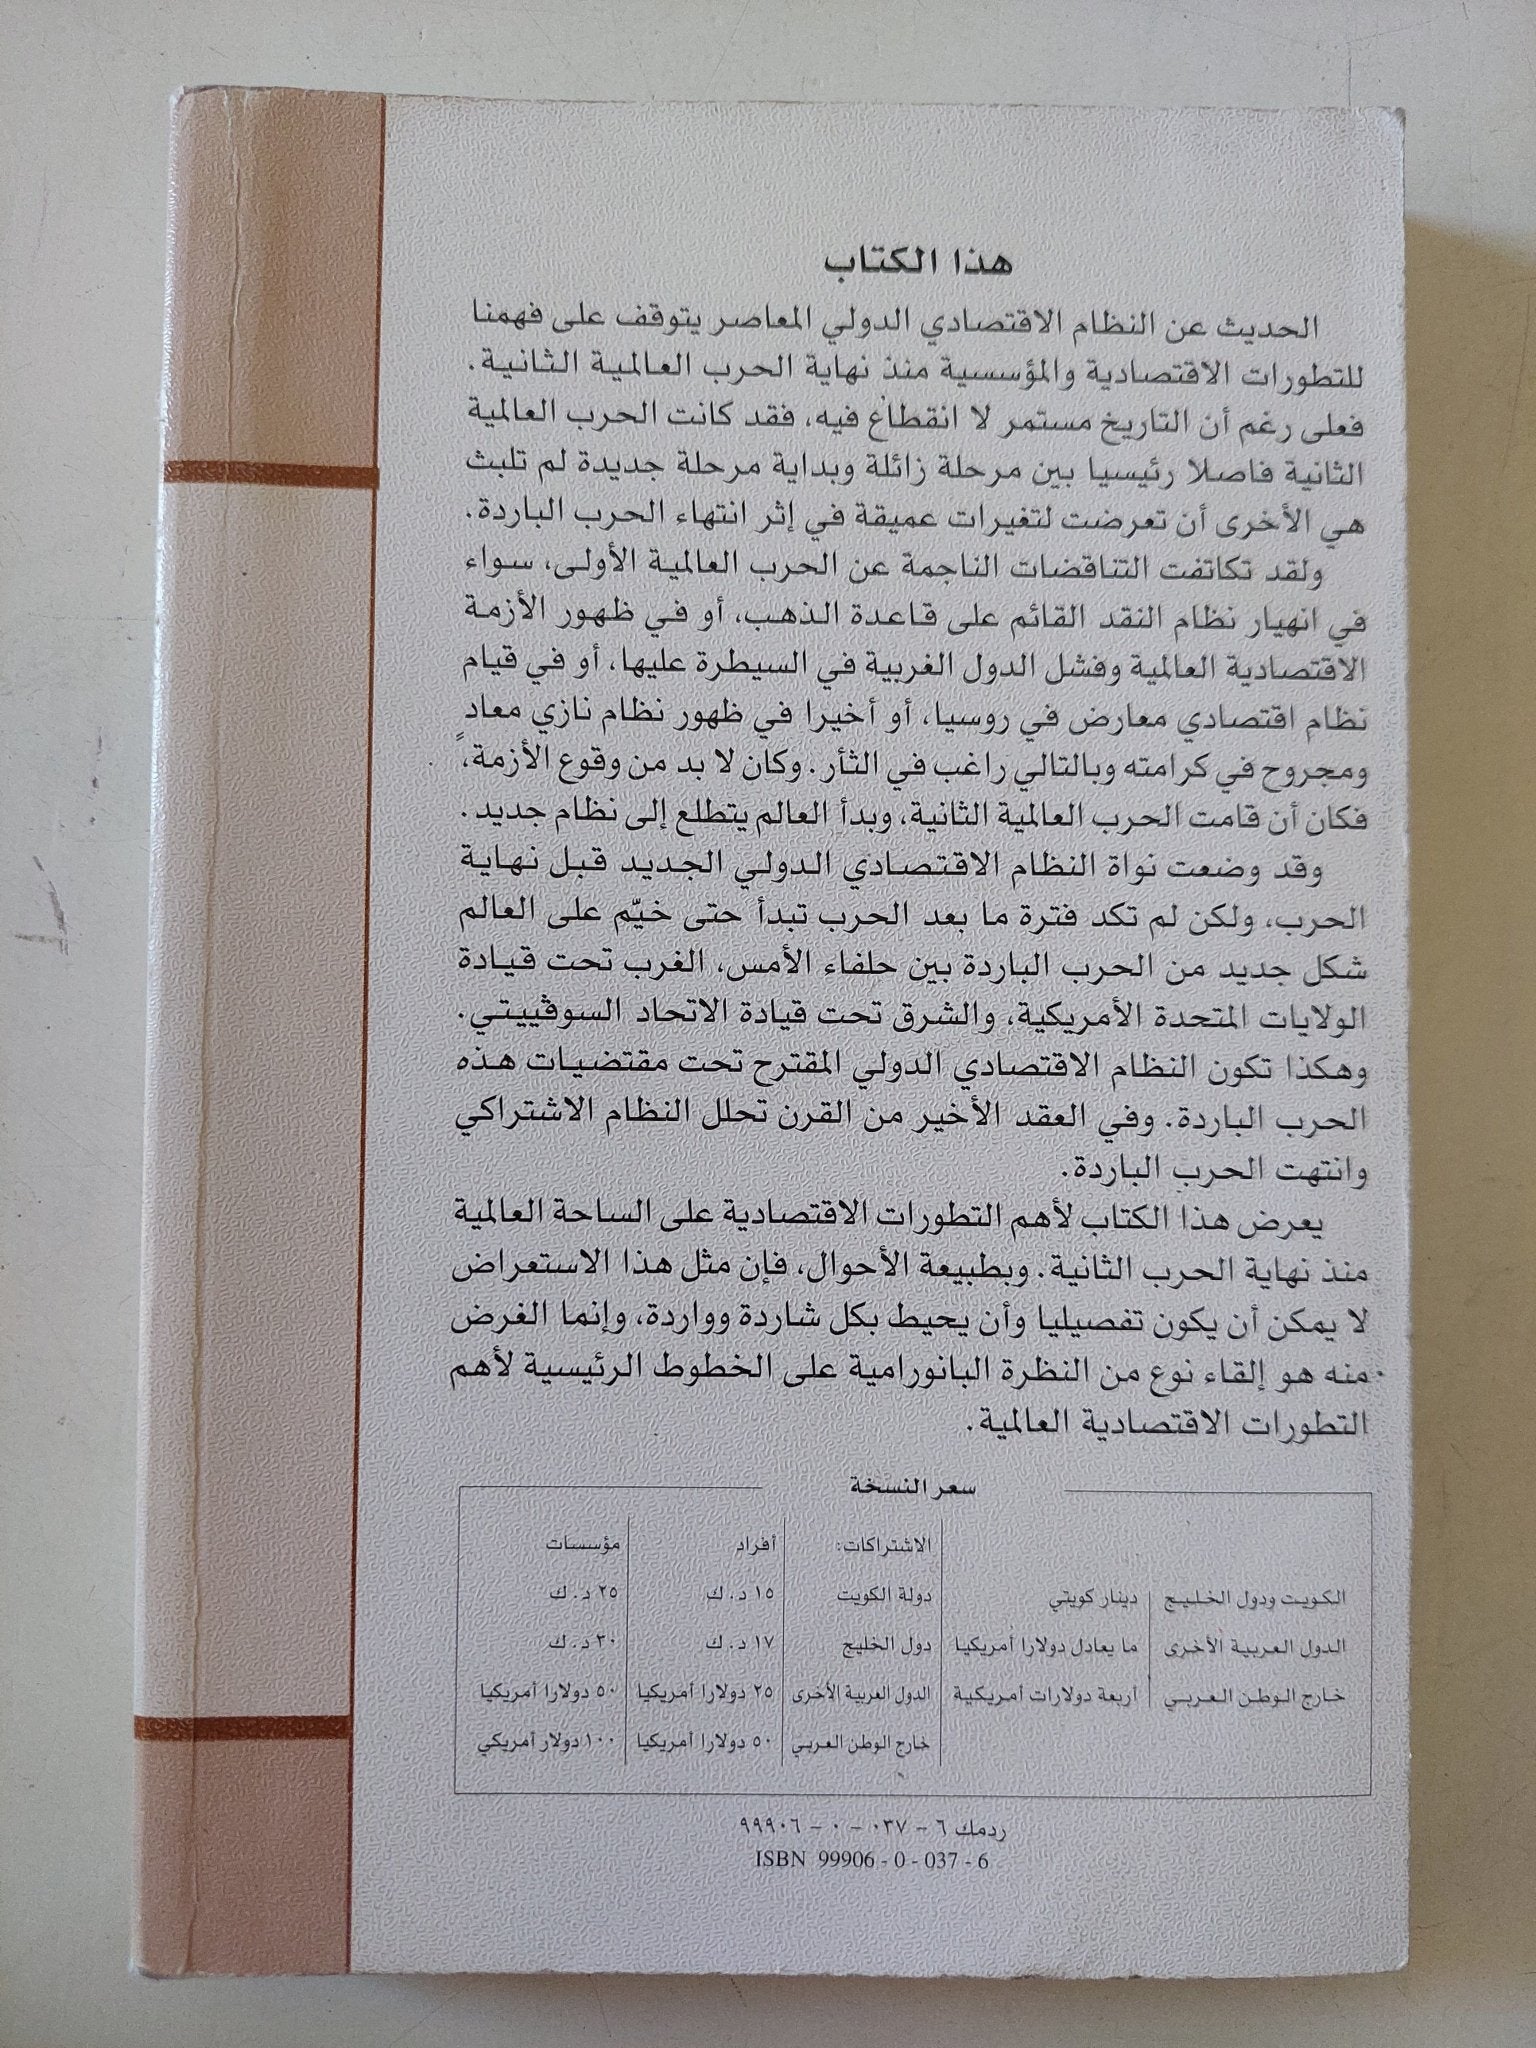 هذا الكتاب
الحديث عن النظام الاقتصادي الدولي المعاصر يتوقف على فهمنا
للتطورات الاقتصادية والمؤسسية منذ نهاية الحرب العالمية الثانية.
فعلى رغم أن التاريخ مستمر لا انقطاع فيه، فقد كانت الحرب العالمية
الثانية فاصلا رئيسيا بين مرحلة زائلة وبداية مرحلة جديدة لم تلبث
هي الأخرى أن تعرضت لتغيرات عميقة في إثر انتهاء الحرب الباردة.
ولقد تكاتفت التناقضات الناجمة عن الحرب العالمية الأولى، سواء
في انهيار نظام النقد القائم على قاعدة الذهب، أو في ظهور الأزمة
الاقتصادية العالمية وفشل الدول الغربية في السيطرة عليها، أو في قيام
نظام اقتصادي معارض في روسيا، أو أخيرا في ظهور نظام نازي معادٍ
ومجروح في كرامته وبالتالي راغب في الثأر. وكان لا بد من وقوع الأزمة،
فكان أن قامت الحرب العالمية الثانية، وبدأ العالم يتطلع إلى نظام جديد.
وقد وضعت نواة النظام الاقتصادي الدولي الجديد قبل نهاية
الحرب، ولكن لم تكد فترة ما بعد الحرب تبدأ حتى خيّم على العالم
شكل جديد من الحرب الباردة بين حلفاء الأمس، الغرب تحت قيادة
الولايات المتحدة الأمريكية، والشرق تحت قيادة الاتحاد السوڤييتي.
وهكذا تكون النظام الاقتصادي الدولي المقترح تحت مقتضيات هذه
الحرب الباردة. وفي العقد الأخير من القرن تحلل النظام الاشتراكي
وانتهت الحرب الباردة.
يعرض هذا الكتاب لأهم التطورات الاقتصادية على الساحة العالمية
منذ نهاية الحرب الثانية. وبطبيعة الأحوال، فإن مثل هذا الاستعراض
لا يمكن أن يكون تفصيليا وأن يحيط بكل شاردة وواردة، وإنما الغرض
منه هو إلقاء نوع من النظرة البانورامية على الخطوط الرئيسية لأهم
التطورات الاقتصادية العالمية.
سعر النسخة
الاشتراكات: أفراد مؤسسات
الكويت ودول الخليج دينار كويتي دولة الكويت ١٥ د. ك ٢٥ د. ك
الدول العربية الأخرى ما يعادل دولارا أمريكيا دول الخليج ١٧ د. ك ٣٠ د. ك
خارج الوطن العربي أربعة دولارات أمريكية الدول العربية الأخرى ٢٥ دولارا أمريكيا ٥٠ دولارا أمريكيا
خارج الوطن العربي ٥٠ دولارا أمريكيا ١٠٠ دولار أمريكي
ردمك ٦ - ٠٣٧ - ٠ - ٩٩٩٠٦
ISBN 99906 - 0 - 037 - 6